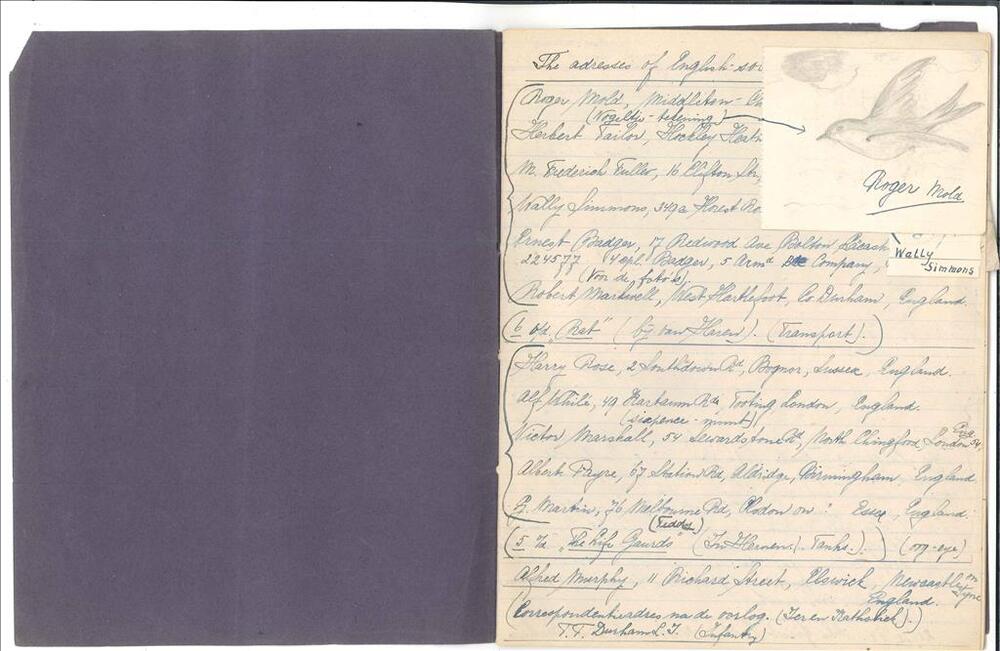 The adresses of English-so
Roger Mold, Middleton-Ch
(Vogeltje-tekening)
Herbert Tailor, Hockley Heath
M. Frederich Fuller, 16 Clifton Str,
Wally Simmons, 349a Forest Ro
Roger Mold
Wally
Simmons
Ernest Badger, 17 Redwood Ave Bolton
224577 Badger, 5 Armd Company,
(Voor de foto's)
Robert Markwell, West Hartlefoot, Co Durham, England.
(6 o/d "Rat" (bij van Haren). (Transport).)
Harry Rose, 2 Southdown Rd, Bognor, Sussex, England.
Alf While, 49 Kartaum Rde, Tooting London, England.
(sixpence-munt)
Victor Marshall, 54 Sewardstone Rd, North Chingford, London Eng.
Albert Payre, 67 Station Rd, Aldridge, Birmingham, England
G. Martin, 76 Melbourne Rd, on: Essex, England.
(Teddy)
(5 v/d "The Life Gaurds" (In Hernen). Tanks.) (oog-eye)
Alfred Murphy, 11 Richard Street, Elswick, Newcastle on Tyne
England.
(Correspondentieadres na de oorlog. (Ier en Katholiek).)
T.T. Durham L.I. (Infantry)